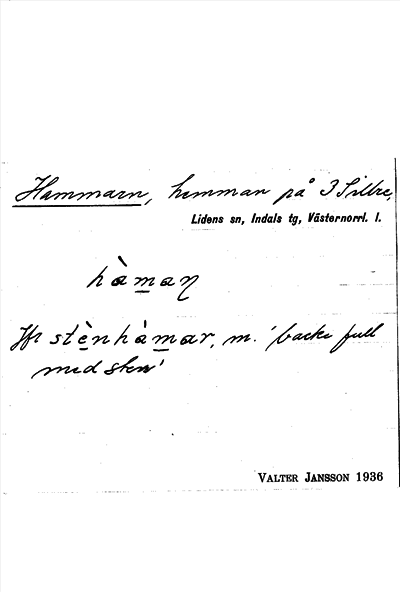 Hammarn, hemman på 3 Sillre,
Lidens sn, Indals tg, Västernorrl. l.
hàmaɳ
Jfr stènhàmar, m. 'backe full
med sten'
VALTER JANSSON 1936